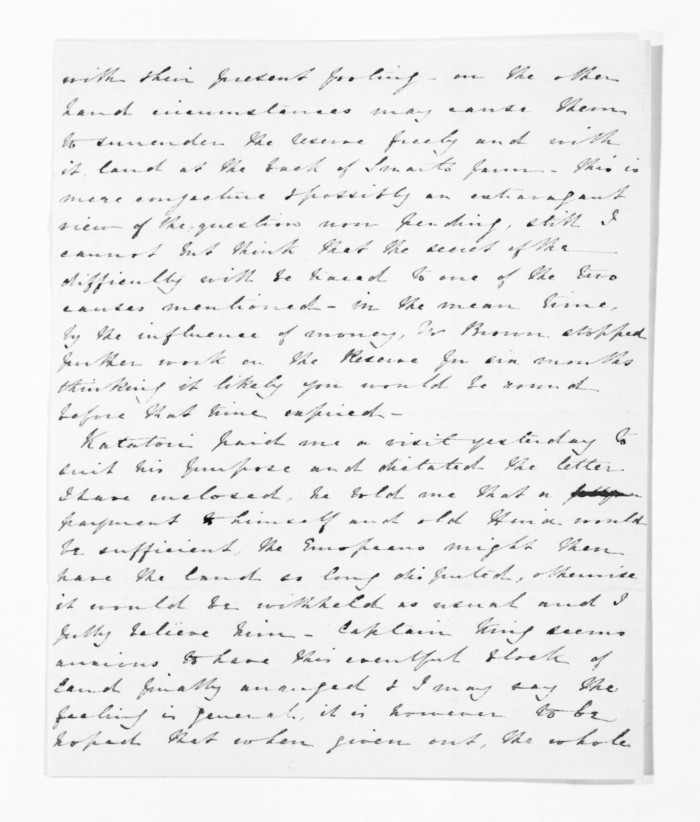 with their present footing - on the other
hand circumstances may cause them
to surrender the reserve freely and with
it land at the back of Smarts farm - this is
mere conjecture & possibly an extravagant
view of the question now pending, still I
cannot but think that the secret of the
difficulty will be traced to one of the two
causes mentioned - in the mean time,
by the influence of money, Dr Brown stopped
further work on the Reserve for six months
thinking it likely you would be round
before that time expired -
Katatori paid me a visit yesterday to
suit his purpose and dictated the letter
I have enclosed, he told me that a
payment to himself and old would
be sufficient, the Europeans might then
have the land so long disputed, otherwise
it would be withheld as usual and I
fully believe him - Captain King seems
anxious to have this eventful block of
land finally arranged & I may say the
feeling is general, it is however to be
hoped that when given out, the whole